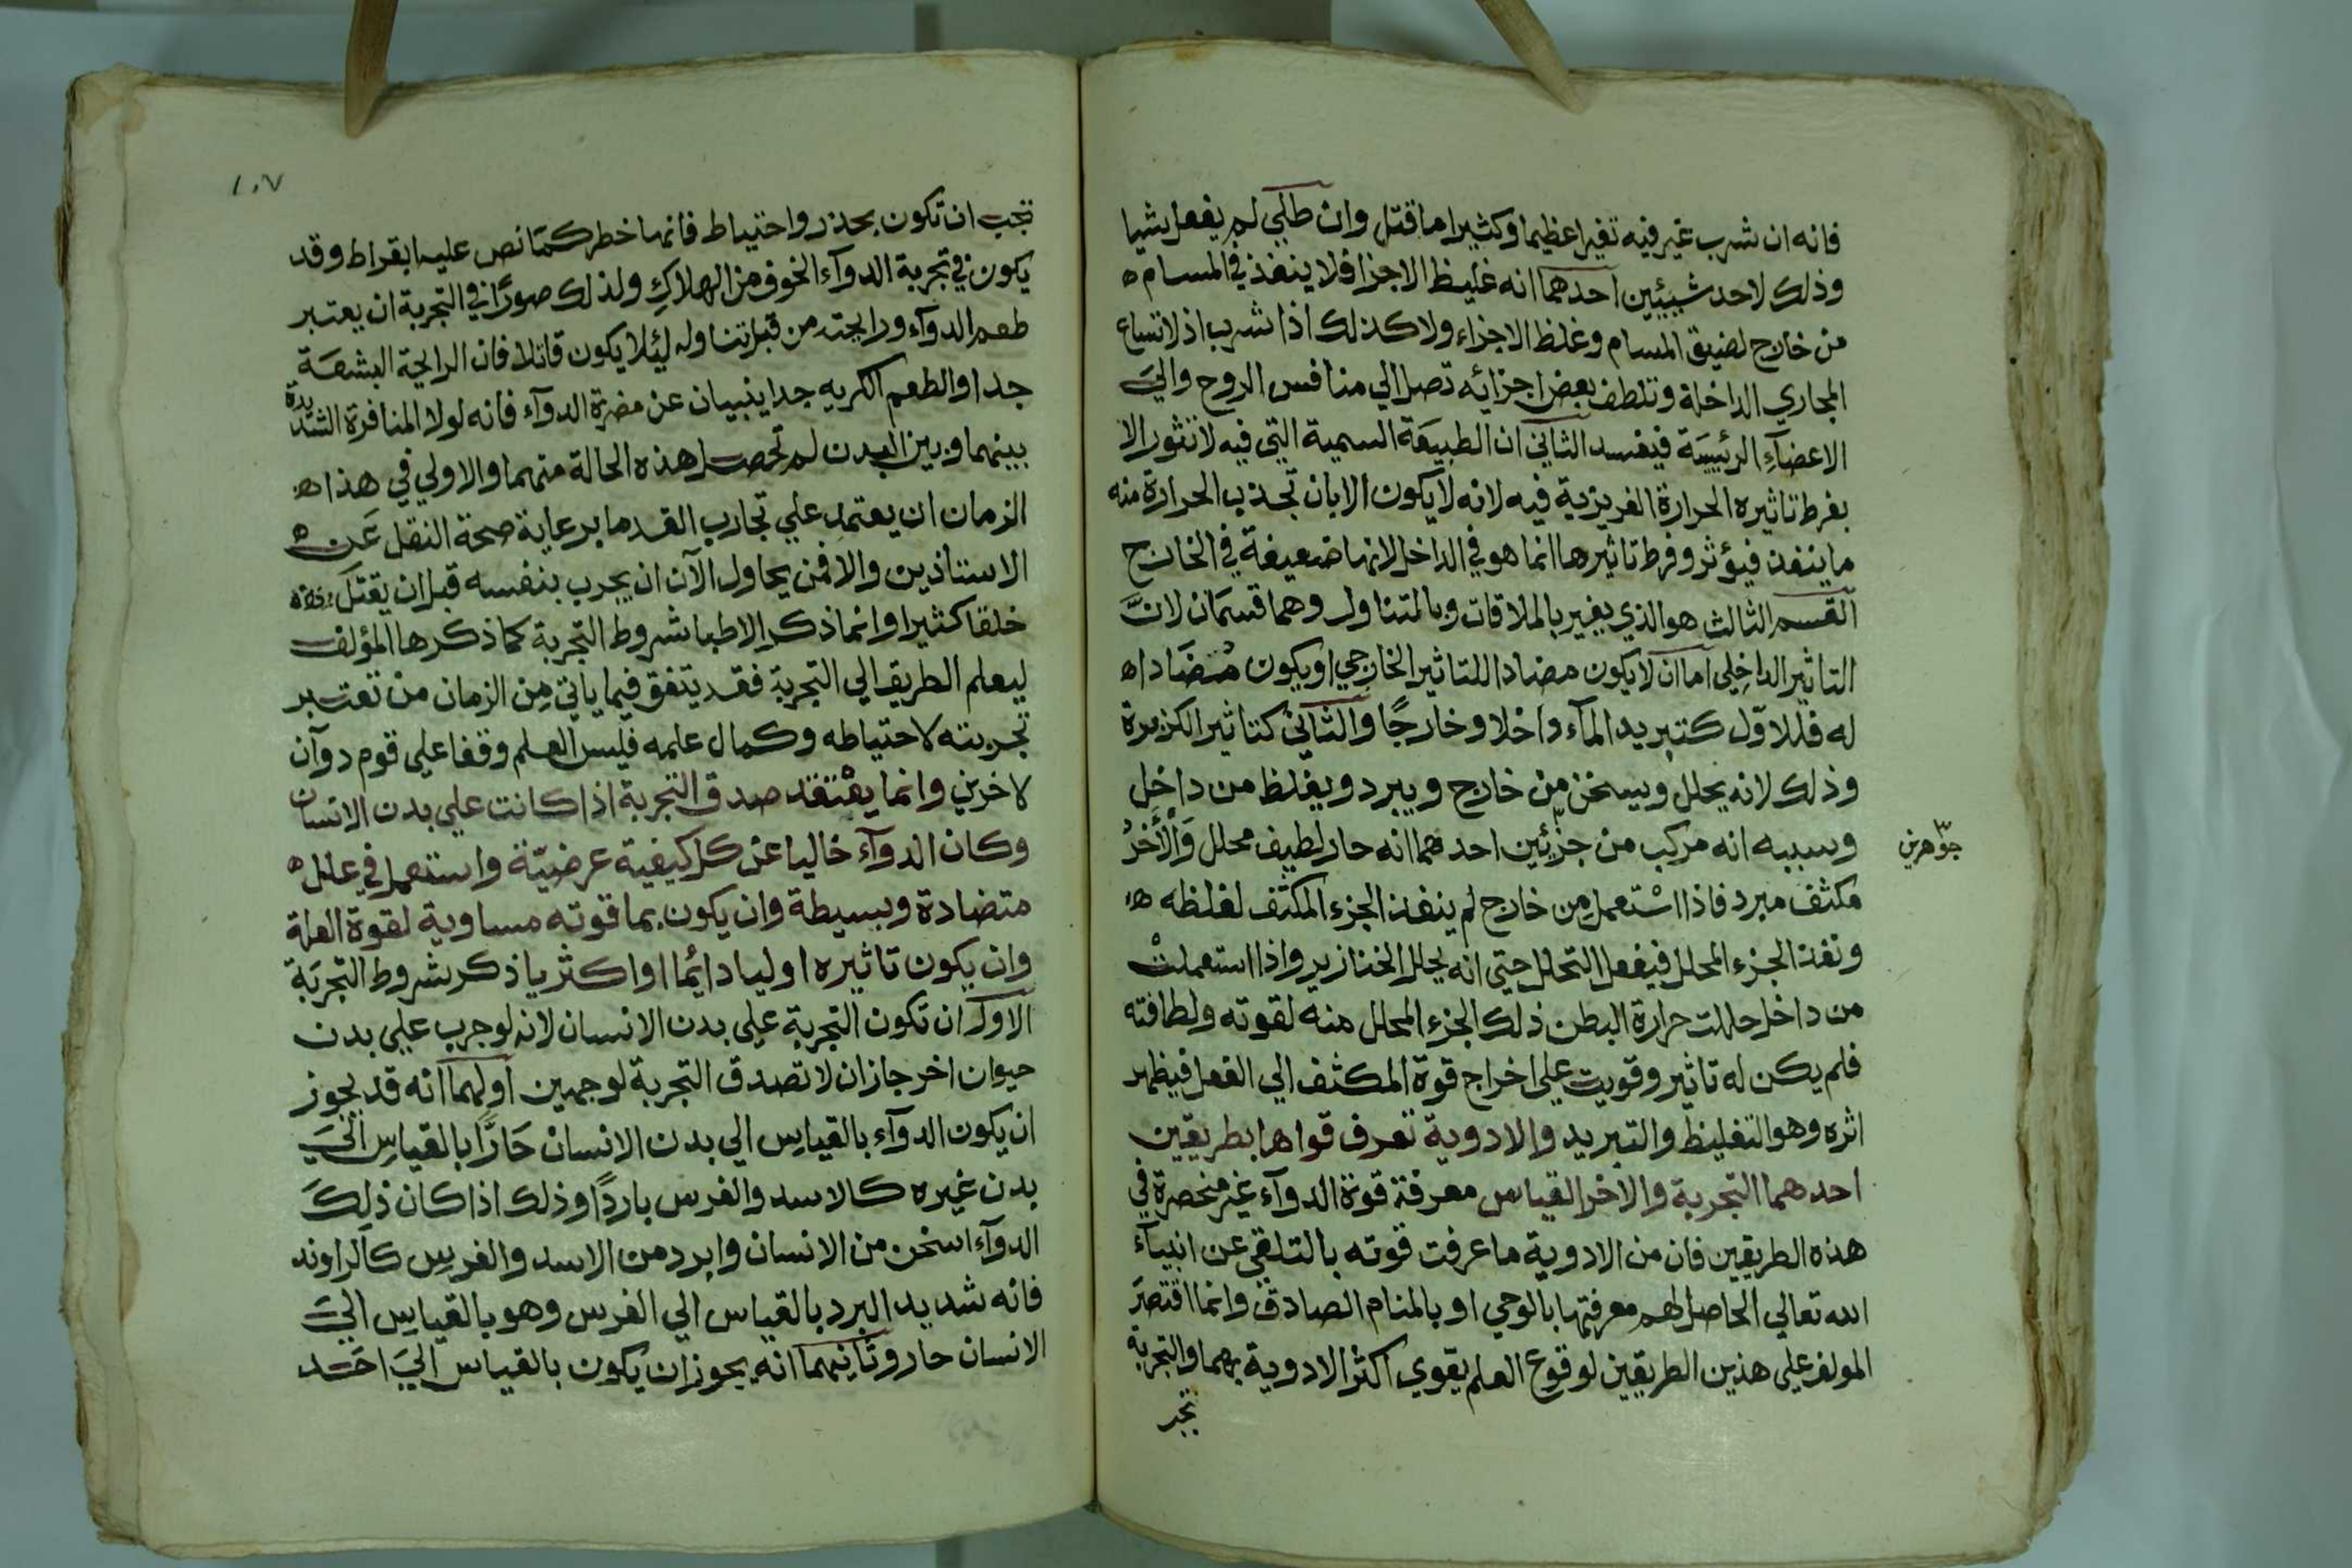 فانه ان شرب غير فيه تغيرا عظيما وكثيرا ما قتل وان طلي لم يفعل شيا
وذلك لاحد شيئين احدهما انه غليظ الاجزا فلا ينفذ في المسام ه
من خارج لضيق المسام وغلظ الاجزاء ولا كذلك اذا شرب اذ لاتساع
المجاري الداخلة وتلطف بعض اجزائه تصل الي منافس الروح والي
الاعضآء الرئيسة فيفسد الثاني ان الطبيعة السمية التي فيه لا تثور الا
بفرط تاثيره الحرارة الغريزية فيه لانه لا يكون الا بان تجذب الحرارة منه
ما ينفذ فيؤثر وفرط تاثيرها انما هو في الداخل لانها ضعيفة في الخارج
القسم الثالث هو الذي يغير بالملاقات وبالمتناول وهما قسمان لان
التاثير الداخلي اما ان لا يكون مضادا للتاثير الخارجي او يكون مضادا ه
له فللاول كتبريد المآء داخلا وخارجا والثاني كتاثير الكزبرة
وذلك لانه يحلل ويسخن من خارج ويبرد ويغلظ من داخل
وسببه انه مركب من جزئين احدهما انه حار لطيف محلل والأخر
جوهرين
مكثف مبرد فاذا استعمل من خارج لم ينفذ الجزء المكثف لغلظه ه
ونفذ الجزء المحلل فيفعل التحلل حتي انه يحلل الخنازير واذا استعملت
من داخل حللت حرارة البطن ذلك الجزء المحلل منه لقوته ولطافته
فلم يكن له تاثير وقويت علي اخراج قوة المكثف الي الفعل فيظهر
اثره وهو التغليظ والتبريد والادوية تعرف قواها بطريقين
احدهما التجربة والاخر القياس معرفة قوة الدوآء غير منحصرة في
هذه الطريقين فان من الادوية ما عرفت قوته بالتلقي عن انبيآء
الله تعالي الحاصل لهم معرفتها بالوحي او بالمنام الصادق وانما اقتصر
المولف علي هذين الطريقين لوقوع العلم بقوي اكثر الادوية بهما والتجربة
تجب
١٠٧
تجب ان تكون بحذر واحتياط فانها خطر كما نص عليه ابقراط وقد
يكون في تجربة الدوآء الخوف من الهلاك ولذلك صورا في التجربة ان يعتبر
طعم الدوآء ورايحته من قبل تناوله ليئلا يكون قاتلا فان الرايحة البشعة
جدا والطعم الكريه جدا ينبيان عن مضرة الدوآء فانه لولا المنافرة الشديدة
بينهما وبين البدن لم تحصل هذه الحالة منهما والاولي في هذا ه
الزمان ان يعتمد علي تجارب القدما برعاية صحة النقل عن ه
الاستاذين والا فمن يحاول الآن ان يجرب بنفسه قبل ان يقتل
خلقا كثيرا وانما ذكر الاطبا شروط التجربة كما ذكرها المؤلف
ليعلم الطريق الي التجربة فقد يتفق فيما ياتي من الزمان من تعتبر
تجربته لاحتياطه وكمال علمه فليس العلم وقفا علي قوم دوآن
لاخرين وانما يعتقد صدق التجربة اذا كانت علي بدن الانسان
وكان الدوآء خاليا عن كل كيفية عرضية واستعمل في علل ه
متضادة وبسيطة وان يكون بما قوته مساوية لقوة العلة
وان يكون تاثيره اوليا دائما او اكثريا ذكر شروط التجربة
الاول ان تكون التجربة علي بدن الانسان لانه لو جرب علي بدن
حيوان اخر جاز ان لا تصدق التجربة لوجهين اولهما انه قد يجوز
ان يكون الدوآء بالقياس الي بدن الانسان حارا بالقياس الي
بدن غيره كالاسد والفرس باردا وذلك اذا كان ذلك
الدوآء اسخن من الانسان وابرد من الاسد والفرس كالراوند
فانه شديد البرد بالقياس الي الفرس وهو بالقياس الي
الانسان حار وثانيهما انه يجوز ان يكون بالقياس الي احد